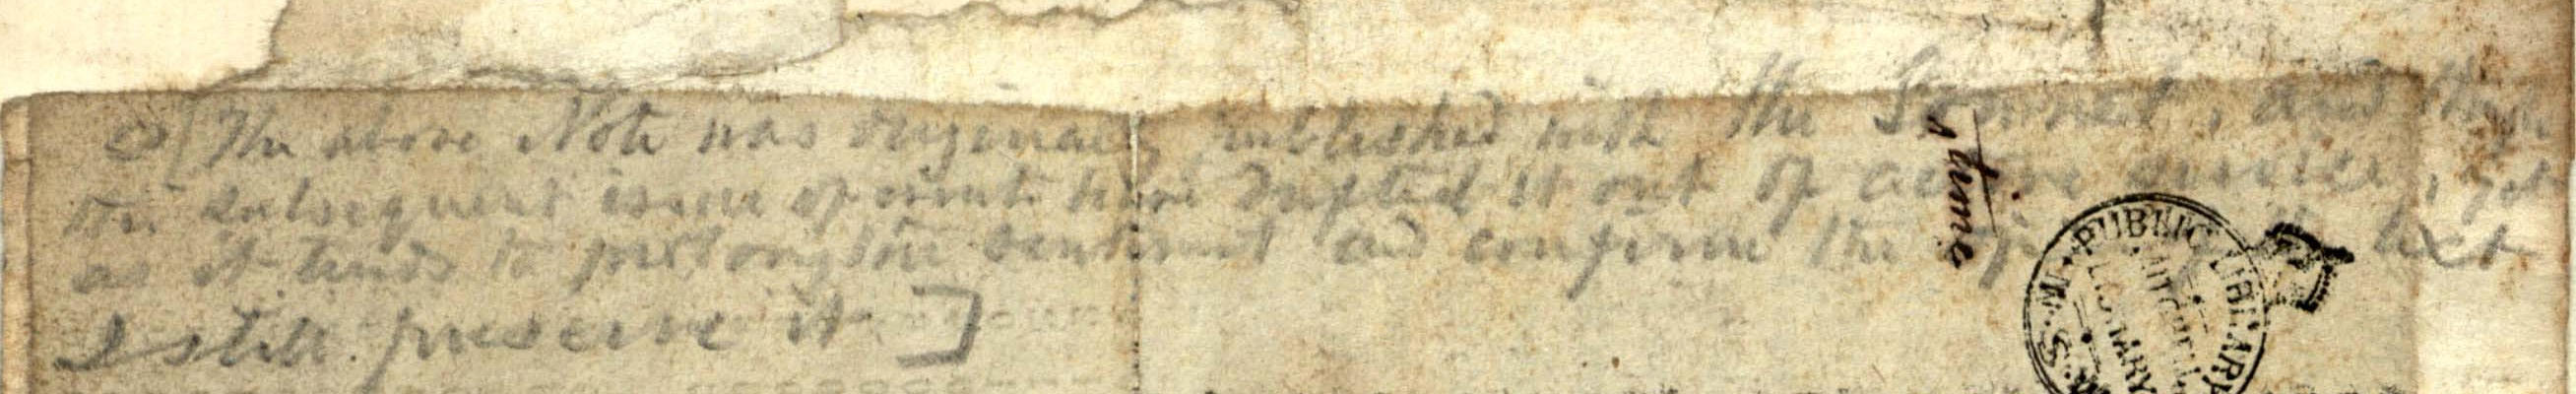 [The above Note was originally published with the Sonnet, and though
the subsequent issue of events have drifted it out of active service, yet
as it tends to prolong the sentiment and confirm the text
I still preserve it]
time
PUBLIC LIBRARY
MITCHELL
LIBRARY
N.S.W.